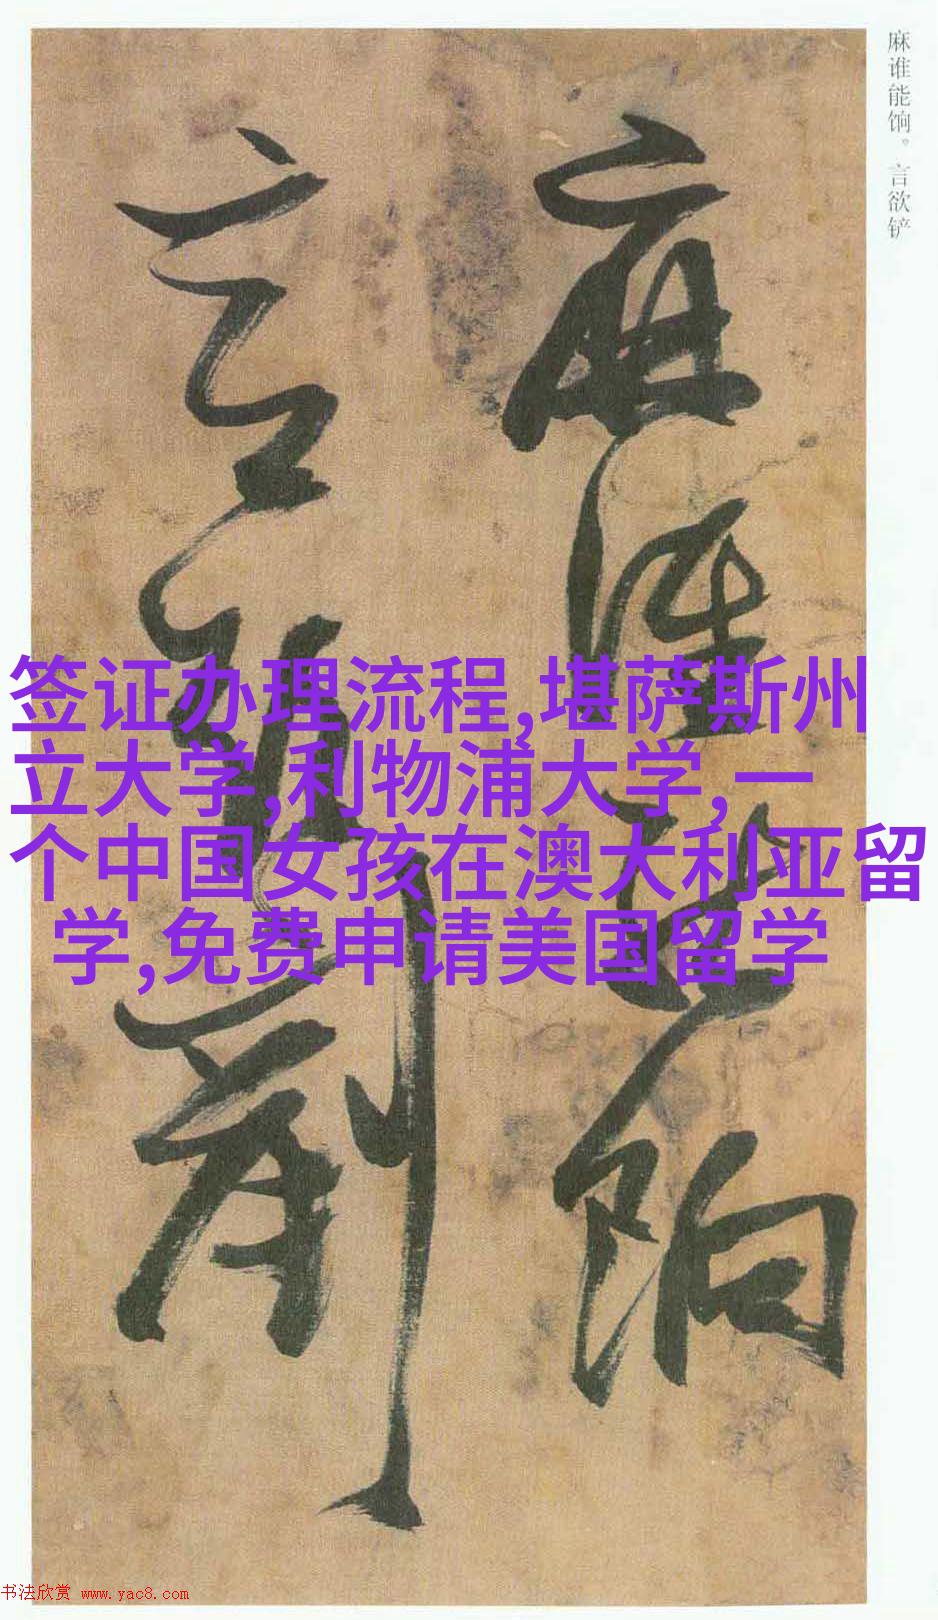 麻谁能饷。言欲铲
麻谁能饷
言欲铲
签证办理流程,堪萨斯州
立大学,利物浦大学,一
个中国女孩在澳大利亚留
学,免费申请美国留学
书法欣赏 www.yac8.com